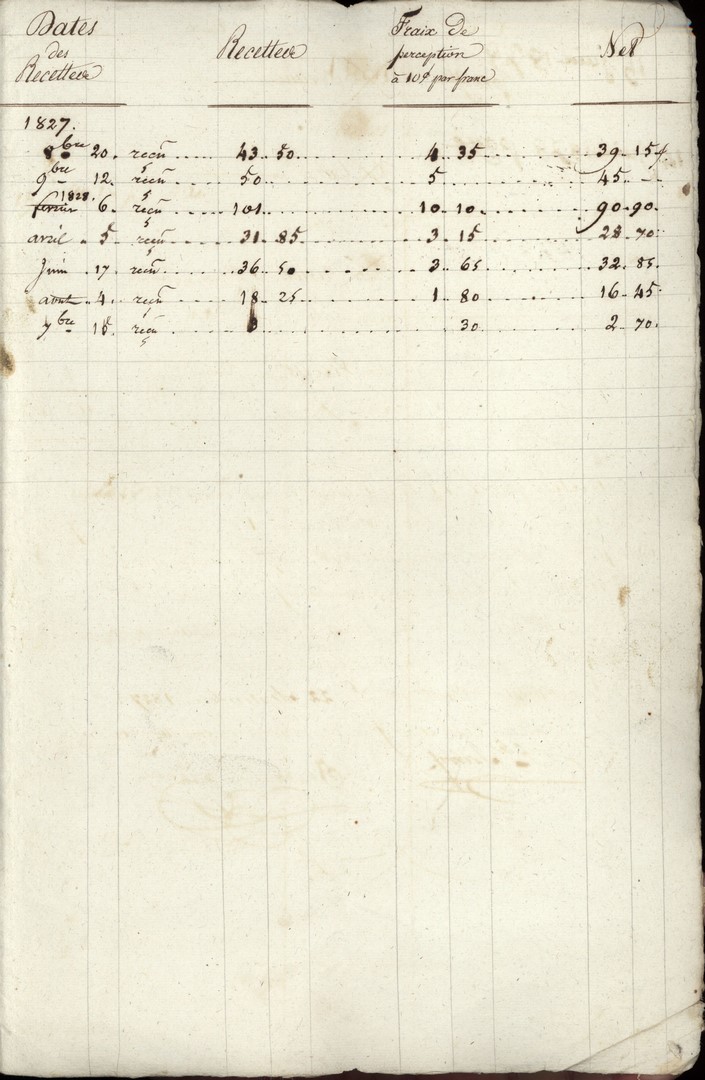 Dates
des
Recettes
Recettes
Fraix de
perception
à 10 c par franc
Net
1827.
8bre 20. reçu ..... 43. 50. .......... 4. 35 .......... 39. 15
9bre 12. reçu ..... 50. .......... 5 .......... 45. —
1828.
fevrier 6. reçu ..... 101. .......... 10. 10. .......... 90. 90.
avril . 5. reçu ..... 31. 85. .......... 3. 15 .......... 28. 70.
Juin . 17. reçu ..... 36. 50 .......... 3. 65 .......... 32. 85.
aout . 4. reçu ..... 18. 25 .......... 1. 80 .......... 16. 45.
7bre reçu ..... 3 .......... 30 .......... 2. 70.